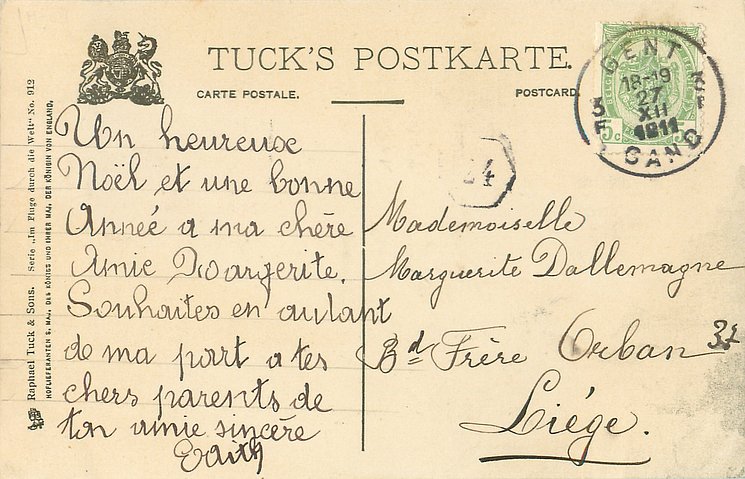 TUCK'S POSTKARTE.
CARTE POSTALE.
POSTCARD.
GENT
18-19
27
XII
1911
3F
3F
GAND
5c
24
Un heureuse
Noël et une bonne
Année a ma chère
Amie Margerite.
Souhaites en autant
de ma part a tes
chers parents de
ton amie sincère
Edith
Mademoiselle
Marguerite Dallemagne
Bd Frère Orban 37
Liége.
Raphael Tuck & Sons. Serie „Im Fluge durch die Welt" No. 912
HOFLIEFERANTEN S. MAJ. DES KÖNIGS UND IHRER MAJ. DER KÖNIGIN VON ENGLAND.